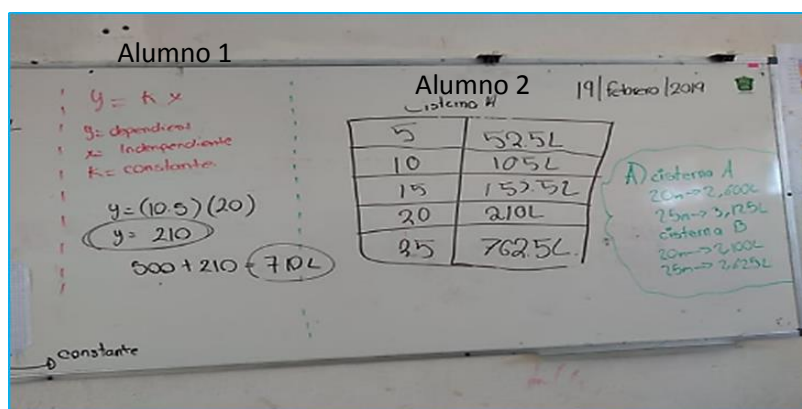 Alumno 1
y = k x
y= dependiens
x= Independiente
k= constante
y=(10.5)(20)
y= 210
500+210=710L
constante
Alumno 2
cisterna A
5 52.5L
10 105L
15 152.5L
20 210L
25 762.5L
19/febrero/2019
A) cisterna A
20m→2,600L
25m→3,125L
cisterna B
20m→2,100L
25m→2,625L